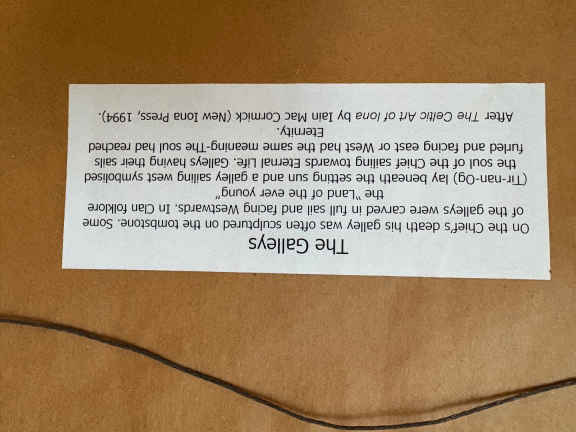 The Galleys
On the Chief's death his galley was often sculptured on the tombstone. Some
of the galleys were carved in full sail and facing Westwards. In Clan folklore
the "Land of the ever young"
(Tir-nan-Og) lay beneath the setting sun and a galley sailing west symbolised
the soul of the Chief sailing towards Eternal Life. Galleys having their sails
furled and facing east or West had the same meaning-The soul had reached
Eternity.
After The Celtic Art of Iona by Iain Mac Cormick (New Iona Press, 1994).